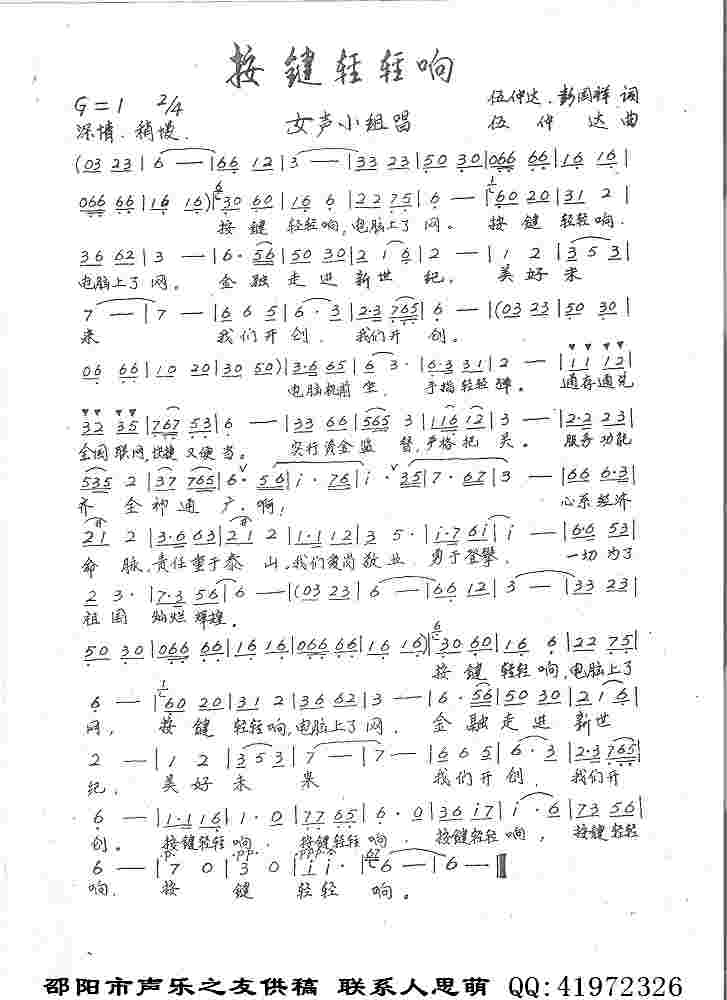 按键轻轻响
G=1 2/4
伍仲达、彭国祥 词
深情、稍慢
女声小组唱
伍仲达曲
(03 23|6 —|66 12|3 —|33 23|50 30|066 66|16 16|
066 66|16 16)|30 60|16 6|22 75|6 —|60 20|31 2|
按键轻轻响,电脑上了网。按键轻轻响.
36 62|3 —|6· 56|50 30|2 1 6|2 —|1 2|3 5 3|
电脑上了网。金融走进新世纪,美好未
7 —|7 —|6 6 5|6· 3|2·3 765|6 —|(03 23|50 30|
来 我们开创、我们开创。
06 66|10 20|30 50)|3·6 65|6 3·|6·3 31|2 —|11 12|
电脑机前坐,手指轻轻弹。通存通兑
32 35|767 53|6 —|33 66|565 3|116 12|3 —|2·2 23|
全国联网,快捷又便当。实行资金监督,严格把关。服务功能
535 2|37 765|6· 56|i· 76|i· 35|7· 67|3 —|66 6·3|
齐全神通广.啊! 心系经济
21 2|3·6 63|21 2|1·1 12|3 5·|i·7 6i|i —|6·6 53|
命脉,责任重于泰山,我们爱岗敬业、勇于登攀、一切为了
2 3·|7·3 56|6 —|(03 23|6 —|66 12|3 —|33 23|
祖国灿烂辉煌。
50 30|066 66|16 16|066 66|16 16)|30 60|16 6|22 75|
按键轻轻响,电脑上了
6 —|60 20|31 2|36 62|3 —|6· 56|50 30|2 1 6|
网,按键轻轻响,电脑上了网、金融走进新世
2 —|1 2|3 5 3|7 —|7 —|6 6 5|6· 3|2·3 765|
纪,美好未来 我们开创、我们开
6 —|1·1 16|1· 0|77 65|6· 0|36 i7|i· 6|73 56|
创。按键轻轻响、按键轻轻响、按键轻轻响,按键轻轻
6 —|7 0|3 0|i i·|6 —|6 —‖
响、按键轻轻响。
邵阳市声乐之友供稿 联系人思萌 QQ:41972326